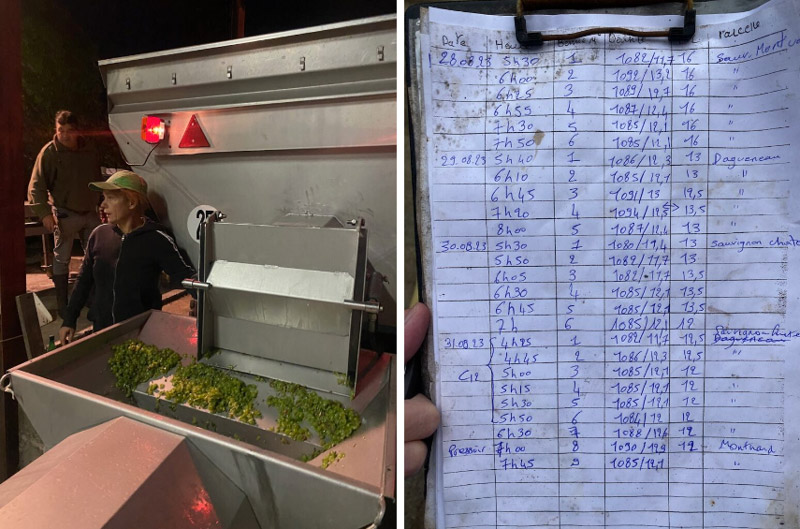 25
Date
28.08.23 5h30 1 1082/11,7 16
6h00 2 1092/13,2 16 "
6h25 3 16 "
6h55 4 1087/12,4 16 "
7h30 5 1085/12,1 16 "
7h50 6 1085/12,1 16 "
29.08.23 5h40 1 1086/12,3 13 Dagueneau
6h10 2 1085/12,1 13 "
6h45 3 1091/13 12,5 "
7h20 4 13,5 "
8h00 5 1087/12,4 13 "
30.08.23 5h30 1 1080/11,4 13 Sauvignon
5h50 2 1082/11,7 13
6h05 3 1082/11,7 13,5
6h30 4 1085/12,1 13,5
6h45 5 1085/12,1 13,5
7h 6 1085/12,1 12
31.08.23 4h25 1 1082/11,7 12,5 Sauvignon
4h45 2 1086/12,3 12,5 "
C12 5h00 3 1085/12,1 12 "
5h15 4 1085/12,1 12 "
5h30 5 1085/12,1 12 "
5h50 6 1084/12 12
6h30 7 12 "
Pressoir 7h00 8 12
7h45 9 1085/12,1 "